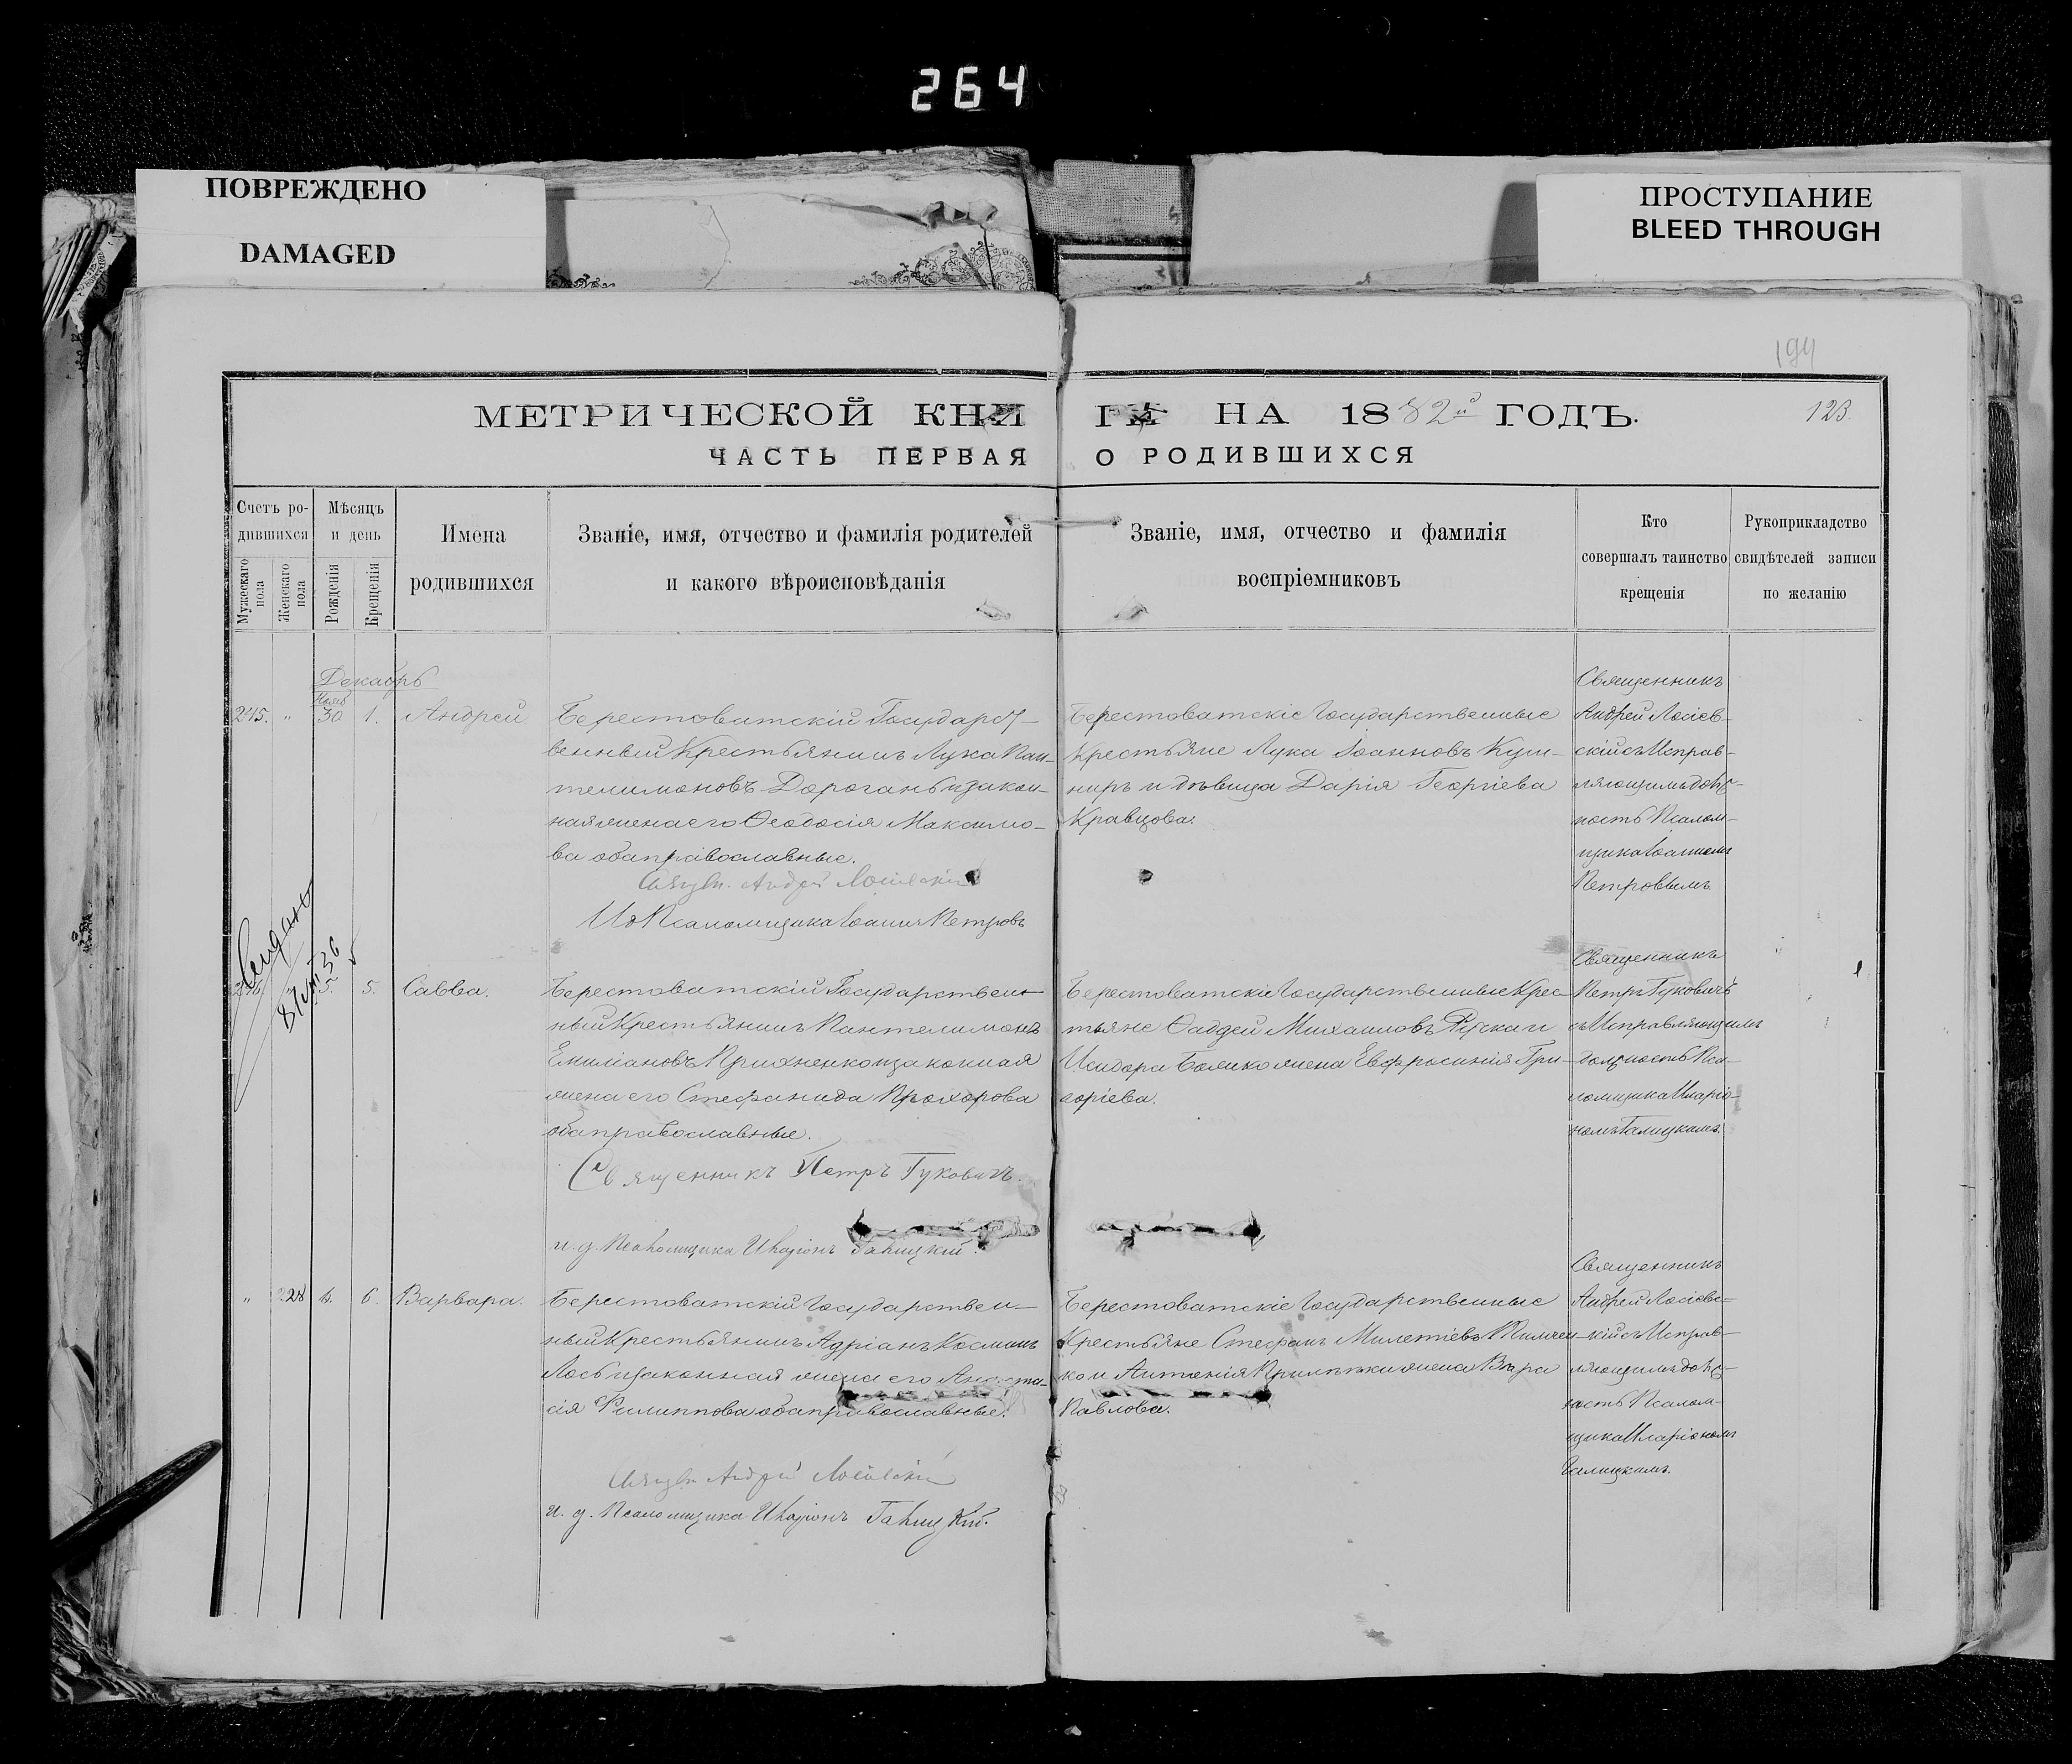 264
ПОВРЕЖДЕНО
DAMAGED
ПРОСТУПАНИЕ
BLEED THROUGH
194
МЕТРИЧЕСКОЙ КНИ ГѢ НА 1882й ГОДЪ.
123.
ЧАСТЬ ПЕРВАЯ О РОДИВШИХСЯ
Счетъ ро-
дившихся
Мужескаго
пола
Женскаго
пола
Мѣсяцъ
и день
Рожденія
Крещенія
Имена
родившихся
Званіе, имя, отчество и фамилія родителей
и какого вѣроисповѣданія
Званіе, имя, отчество и фамилія
воспріемниковъ
Кто
совершалъ таинство
крещенія
Рукоприкладство
свидѣтелей записи
по желанію
Декабрь
Нояб
245. " 30 1. Андрей
Берестоватскій Государст-
венный Крестьянинъ Лука Пан-
телимоновъ Дорогань и закон-
ная жена его Ѳеодосія Максимо-
ва оба православные.
Священ. Андрей Лосіевскій
Ид Псаломщика Іоаннъ Петровъ
Берестоватскіе Государственные
Крестьяне Лука Іоанновъ Куш-
ниръ и дѣвица Дарія Георгіева
Кравцова.
Священникъ
Андрей Лосіев-
скій съ Исправ-
ляющимъ долж-
ность Псалом-
щика Іоанномъ
Петровымъ
246. 5. 5. Савва.
Берестоватскій Государствен-
ный Крестьянинъ Пантелимонъ
Емиліановъ и законная
жена его Стефанида Прохорова
оба православные.
Священникъ Петръ Гуковичъ.
и. д. Псаломщика Иларіонъ Галицкій.
Берестоватскіе Государственные Крес-
тьяне Ѳаддей Михаиловъ и
Исидора жена Евфросинія Гри-
горіева.
Священникъ
Петръ Гуковичъ
съ Исправляющимъ
должность Пса-
ломщика Иларіо-
номъ Галицкимъ.
" 228 6. 6. Варвара.
Берестоватскій Государствен-
ный Крестьянинъ Адріанъ Косминъ
Лось и законная жена его Анаста-
сія Филиппова оба православные.
Священ. Андрей Лосіевскій
и. д. Псаломщика Иларіонъ Галицкій.
Берестоватскіе Государственные
Крестьяне Стефанъ Милетіевъ Пилипен-
ко и Антонія жена Вѣра
Павлова.
Священникъ
Андрей Лосіевс-
кій съ Исправ-
ляющимъ долж-
ность Псалом-
щика Иларіономъ
Галицкимъ.